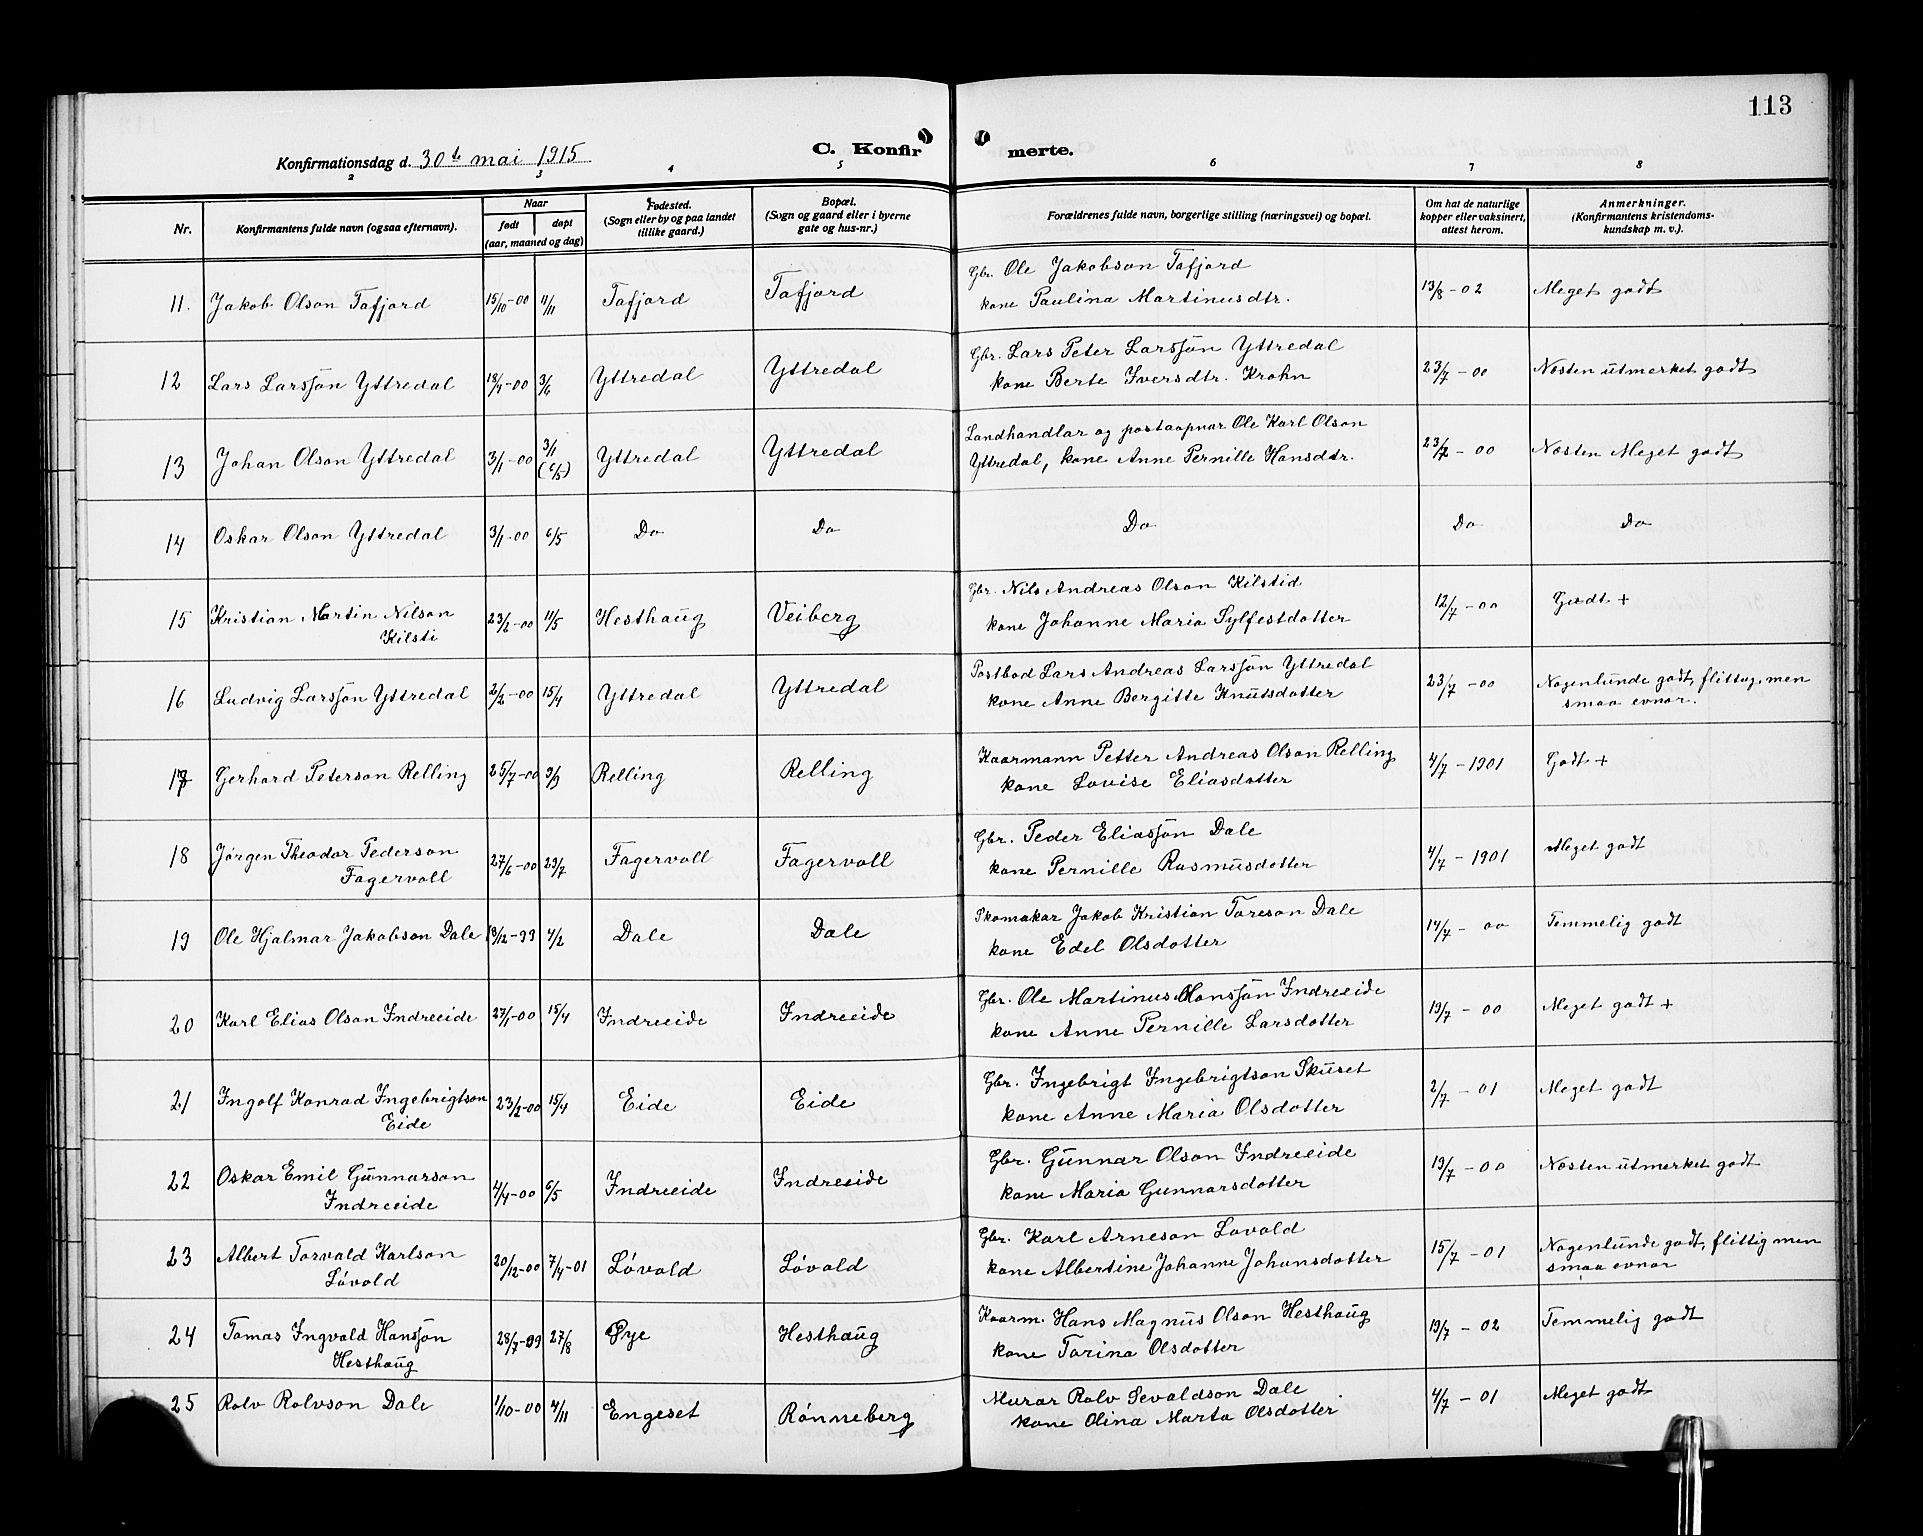 113
Konfirmationsdag d. 30te mai 1915
C. Konfirmerte.
2 3 4 5 6 7 8
Nr. Konfirmantens fulde navn (ogsaa efternavn). Naar født døpt (aar, maaned og dag) Fødested. (Sogn eller by og paa landet tillike gaard.) Bopæl. (Sogn og gaard eller i byerne gate og hus-nr.) Forældrenes fulde navn, borgerlige stilling (næringsvei) og bopæl. Om hat de naturlige kopper eller vaksinert, attest herom. Anmerkninger. (Konfirmantens kristendoms-kundskap m. v.).
11. Jakob Olson Tafjord 15/10-00 11/11 Tafjord Tafjord Gbr. Ole Jakobson Tafjord
kone Paulina Martinusdtr. 13/8-02 Meget godt
12 Lars Larsson Yttredal 18/4-00 3/6 Yttredal Yttredal Gbr. Lars Peter Larsson Yttredal
kone Berte Iversdtr. Krohn 23/7-00 Næsten utmerket godt
13 Johan Olson Yttredal 3/1-00 3/1 (6/5) Yttredal Yttredal Landhandlar og postaapnar Ole Karl Olson
Yttredal, kone Anne Pernille Hansdtr. 23/7-00 Næsten Meget godt
14 Oskar Olson Yttredal 3/1-00 6/5 Do Do Do Do Do
15 Kristian Martin Nilson
Kilsti 23/2-00 11/5 Hesthaug Veiberg Gbr. Nils Andreas Olson Kilstid
kone Johanne Maria Sylfestdotter 12/7-00 Godt +
16 Ludvig Larsson Yttredal 2/2-00 15/4 Yttredal Yttredal Postbod Lars Andreas Larsson Yttredal
kone Anne Bergitte Knutsdotter 23/7-00 Nogenlunde godt, flittig, men
smaa evnar.
17 Gerhard Peterson Relling 25/7-00 9/9 Relling Relling Kaarmann Petter Andreas Olson Relling
kone Lovise Eliasdotter 4/7-1901 Godt +
18 Jørgen Theodor Pederson
Fagervoll 27/6-00 29/7 Fagervoll Fagervoll Gbr. Peder Eliasson Dale
kone Pernille Rasmusdotter 4/7-1901 Meget godt
19 Ole Hjalmar Jakobson Dale 19/12-99 4/2 Dale Dale Skomakar Jakob Kristian Toreson Dale
kone Edel Olsdotter 14/7-00 Temmelig godt
20 Karl Elias Olson Indreeide 27/1-00 15/4 Indreeide Indreeide Gbr. Ole Martinus Hansson Indreeide
kone Anne Pernille Larsdotter 19/7-00 Meget godt +
21 Ingolf Konrad Ingebrigtson
Eide 23/2-00 15/4 Eide Eide Gbr. Ingebrigt Ingebrigtson Skuset
kone Anne Maria Olsdotter 2/7-01 Meget godt
22 Oskar Emil Gunnarson
Indreeide 4/4-00 6/5 Indreeide Indreeide Gbr. Gunnar Olson Indreeide
kone Maria Gunnarsdotter 19/7-00 Næsten utmerket godt
23 Albert Torvald Karlson
Løvold 20/12-00 7/4-01 Løvold Løvold Gbr. Karl Arneson Lovold
kone Albertine Johanne Johansdotter 15/7-01 Nogenlunde godt, flittig men
smaa evnar
24 Tomas Ingvald Hansson
Hesthaug 28/7-99 27/8 Pye Hesthaug Kaarm. Hans Magnus Olson Hesthaug
kone Torina Olsdotter 19/7-02 Temmelig godt
25 Rolv Rolvson Dale 1/10-00 4/11 Engeset Rønneberg Murar Rolv Sevaldson Dale
kone Olina Marta Olsdotter 4/7-01 Meget godt